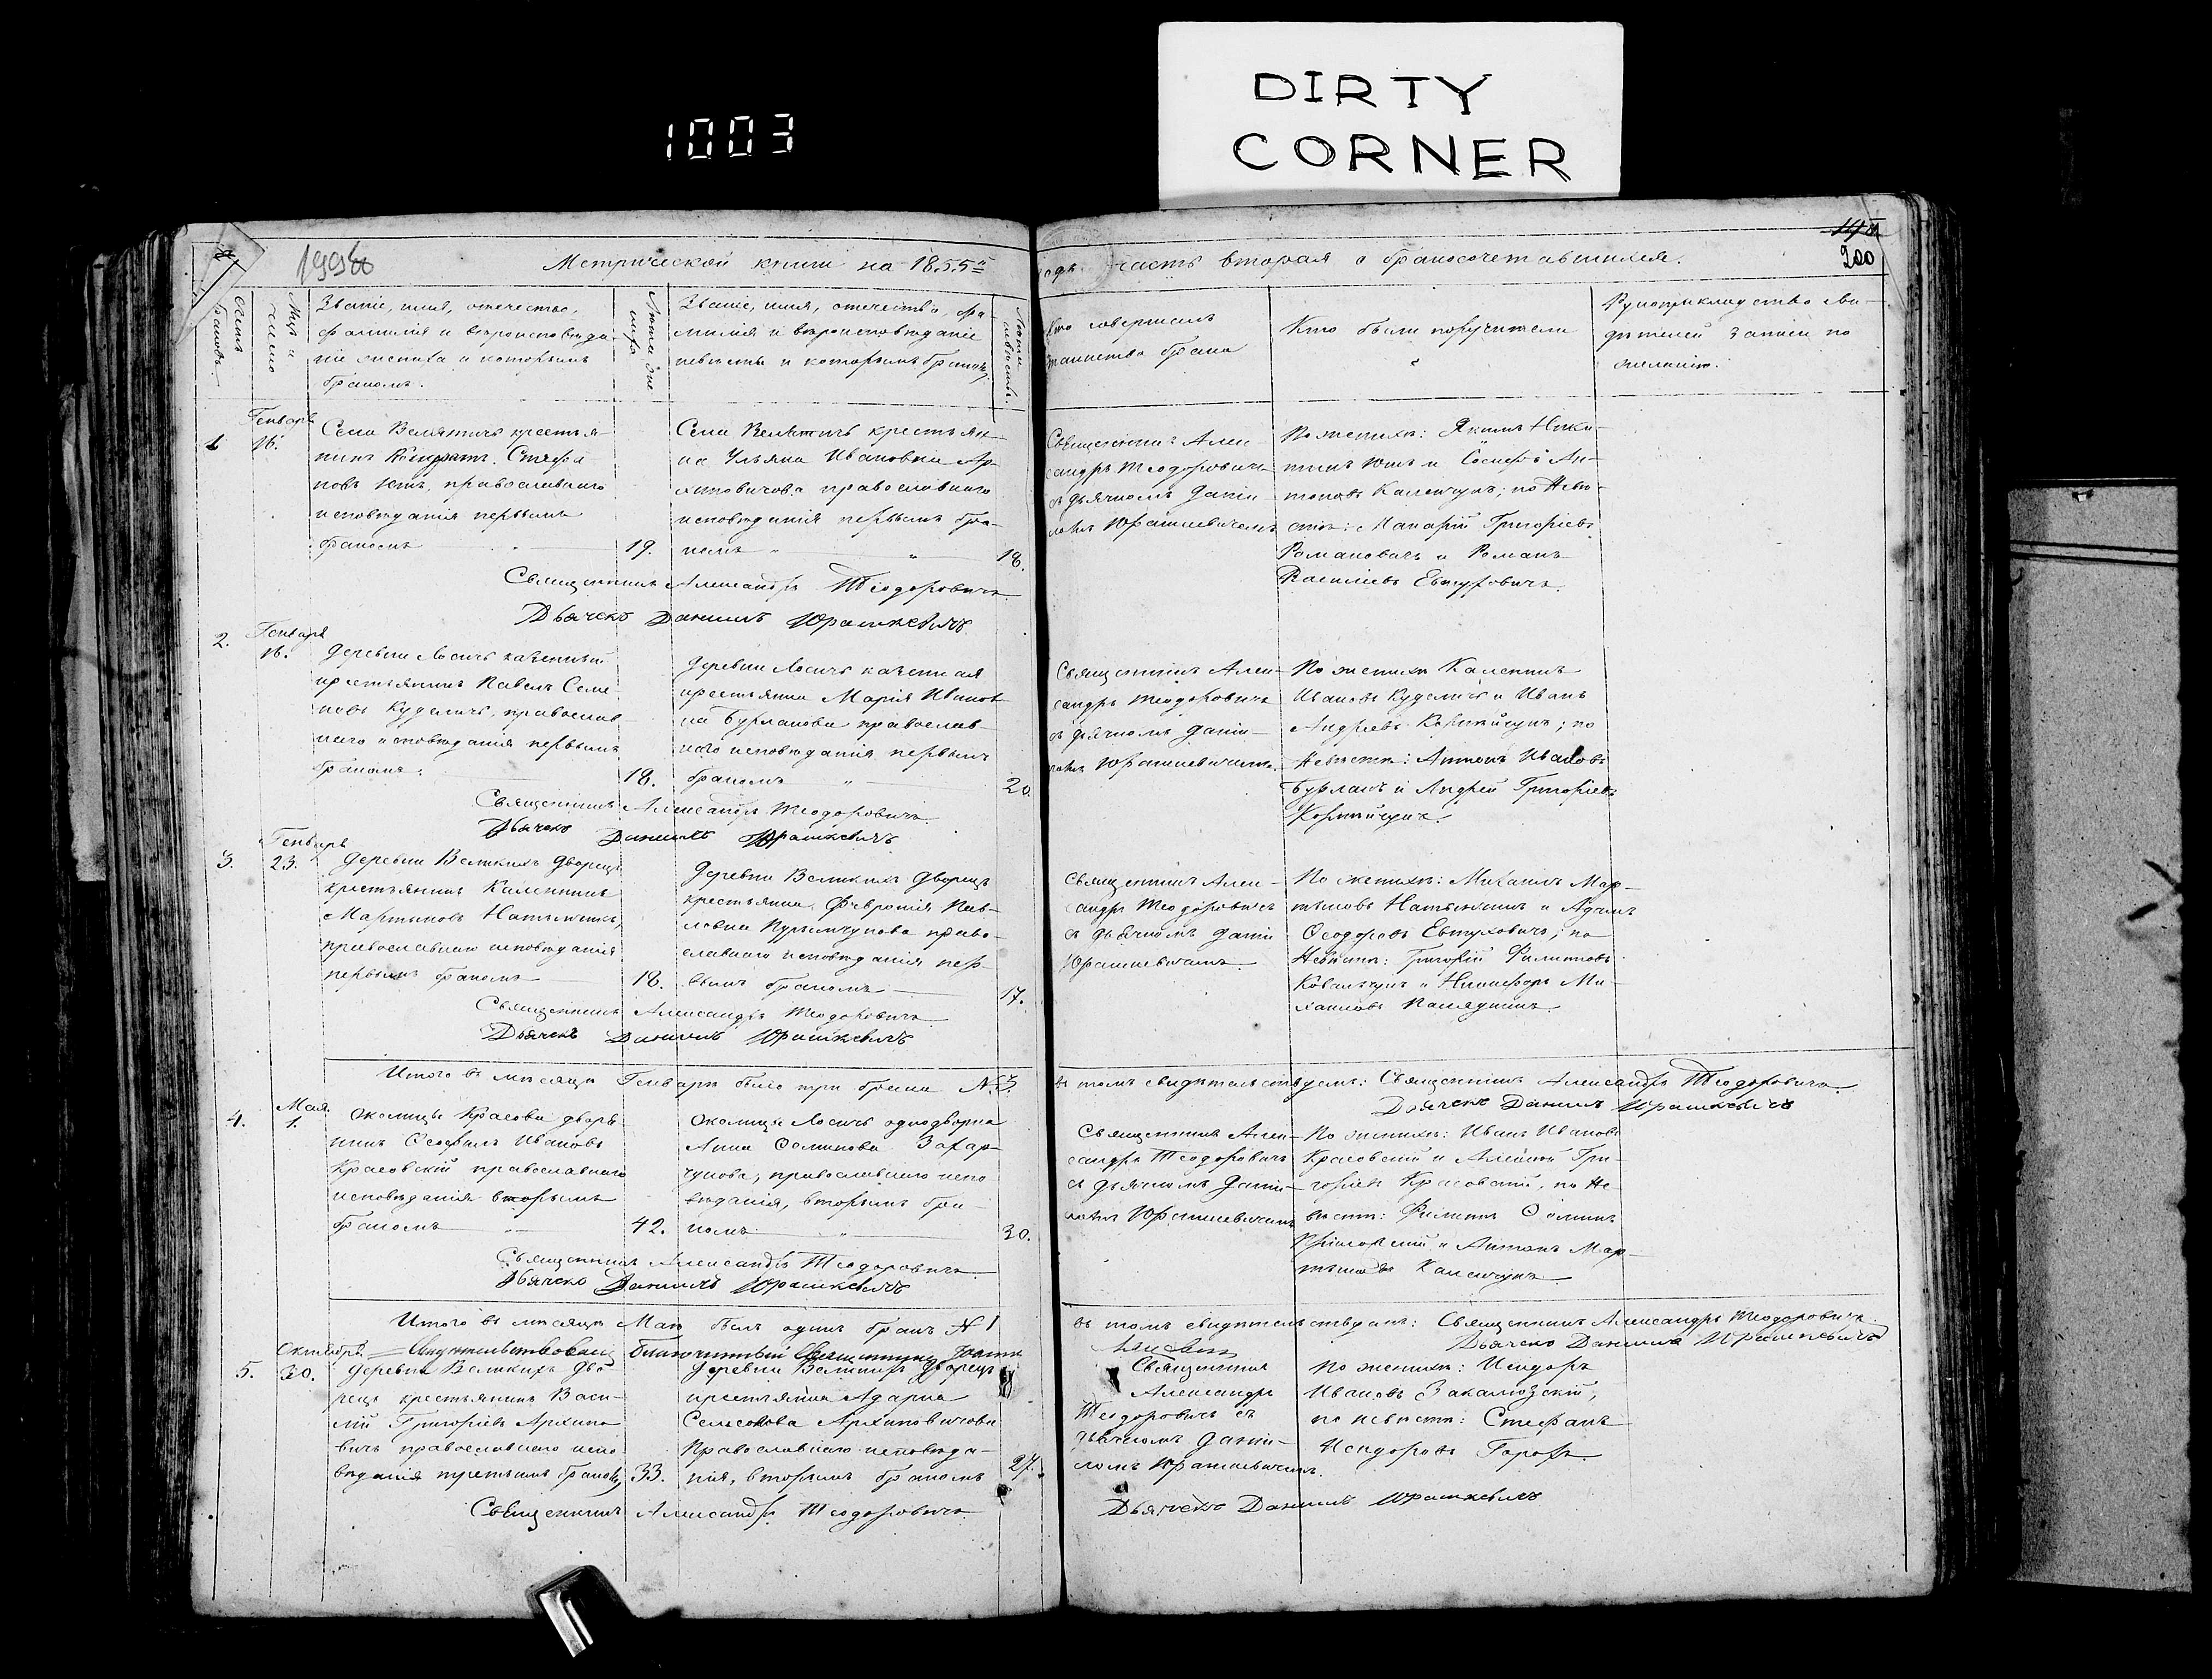 DIRTY
CORNER
1003
Метрической книги на 1855й
годъ часть вторая о бракосочетавшихся.
200
Счетъ браковъ
Мцъ и число
Званіе, имя, отечество,
фамилія и вѣроисповѣда-
ніе жениха и которымъ
бракомъ.
Лѣта же-
ниха
Званіе, имя, отечество, фа-
милія и вѣроисповѣданіе
невѣсты и которымъ бракомъ
Лѣта невѣсты.
Кто совершалъ
таинство брака
Кто были поручители
Рукоприкладство сви-
дѣтелей записи по
желанію.
1
Генваря
16.
Села Велятичъ крестья-
нинъ Кондратъ Стефа-
новъ Ютъ, православнаго
исповѣданія первымъ
бракомъ
19.
Села Велятичъ крестьян-
ка Ульяна Ивановна Ар-
хиповичова православнаго
исповѣданія первымъ бра-
комъ
18.
Священникъ Алек-
сандръ Теодоровичъ
съ дьячкомъ Дании-
ломъ Юрашкевичемъ
По женихѣ: Якимъ Ники-
тинъ Ютъ и Іосифъ Ан-
тоновъ Каленчукъ; по Невѣ-
стѣ: Макарій Григорьевъ
Романовичъ и Романъ
Васильевъ Евтуховичъ.
Священникъ Александръ Теодоровичъ
Дьячекъ Даниилъ Юрашкевичъ
2.
Генваря
16.
Деревни Лосичъ казенный
крестьянинъ Павелъ Семе-
новъ Куделичъ, православ-
наго исповѣданія первымъ
бракомъ.
18.
Деревни Лосичъ казенная
крестьянка Марія Иванов-
на Бурлакова православ-
наго исповѣданія первымъ
бракомъ
20.
Священникъ Алек-
сандръ Теодоровичъ
съ дьячкомъ Дании-
ломъ Юрашкевичемъ.
По женихѣ Каленикъ
Ивановъ Куделичъ и Иванъ
Андреевъ; по
Невѣстѣ: Антонъ Ивановъ
Бурлакъ и Андрей Григорьевъ
Священникъ Александръ Теодоровичъ
Дьячекъ Даниилъ Юрашкевичъ
3.
Генваря
23.
Деревни Великихъ Дворецъ
крестьянинъ Каленикъ
Мартиновъ
православнаго исповѣданія
первымъ бракомъ
18.
Деревни Великихъ Дворецъ
крестьянка Февронія Пав-
ловна право-
славнаго исповѣданія пер-
вымъ бракомъ
17.
Священникъ Алек-
сандръ Теодоровичъ
съ дьячкомъ Дании
Юрашкевичемъ.
По женихѣ: Михаилъ Мар-
тиновъ и Адамъ
Ѳеодоровъ Евтуховичъ; по
Невѣстѣ: Григорій Филиповъ
Ковальчукъ и Никифоръ Ми-
хаиловъ
Священникъ Александръ Теодоровичъ
Дьячекъ Даниилъ Юрашкевичъ
Итого въ мѣсяцѣ Генварѣ было три брака №3.
въ томъ свидѣтельствуемъ: Священникъ Александръ Теодоровичъ
Дьячекъ Даниилъ Юрашкевичъ
4.
Мая
1.
Околицы Красова дворя-
нинъ Ѳеофилъ Ивановъ
Красовскій православнаго
исповѣданія вторымъ
бракомъ
42.
Околицы Лосичъ однодворка
Анна Ѳоминова Захар-
чукова, православнаго испо
вѣданія, вторымъ бра-
комъ
30.
Священникъ Алек-
сандръ Теодоровичъ
съ дьячкомъ Дании-
ломъ Юрашкевичемъ
По женихѣ: Иванъ Ивановъ
Красовскій и Алексѣй Гри-
горьевъ Красовскій, по Не-
вѣстѣ: Филипъ Ѳоминъ
и Антонъ Мар-
тиновъ Каленчукъ
Священникъ Александръ Теодоровичъ
Дьячекъ Даниилъ Юрашкевичъ
Итого въ мѣсяцѣ Маѣ былъ одинъ бракъ №1
въ томъ свидѣтельствуемъ: Священникъ Александръ Теодоровичъ.
Дьячекъ Даниилъ Юрашкевичъ
Свидѣтельствовалъ благочинный Священникъ Іоаннъ
5.
Октября
30.
Деревни Великихъ Дво
рецъ крестьянинъ Васи-
лій Григорьевъ Архипо
вичъ православнаго испо
вѣданія третьимъ бракомъ
33.
Деревни Великихъ Дворецъ
крестьянка Адарка
Архиповичова
Православнаго исповѣда-
нія, вторымъ бракомъ
27.
Священникъ
Александръ
Теодоровичъ съ
дьячкомъ Дании-
ломъ Юрашкевичемъ.
По женихѣ: Исидоръ
Ивановъ
по невѣстѣ: Стефанъ
Исидоровъ
Священникъ Александръ Теодоровичъ
Дьячекъ Даниилъ Юрашкевичъ